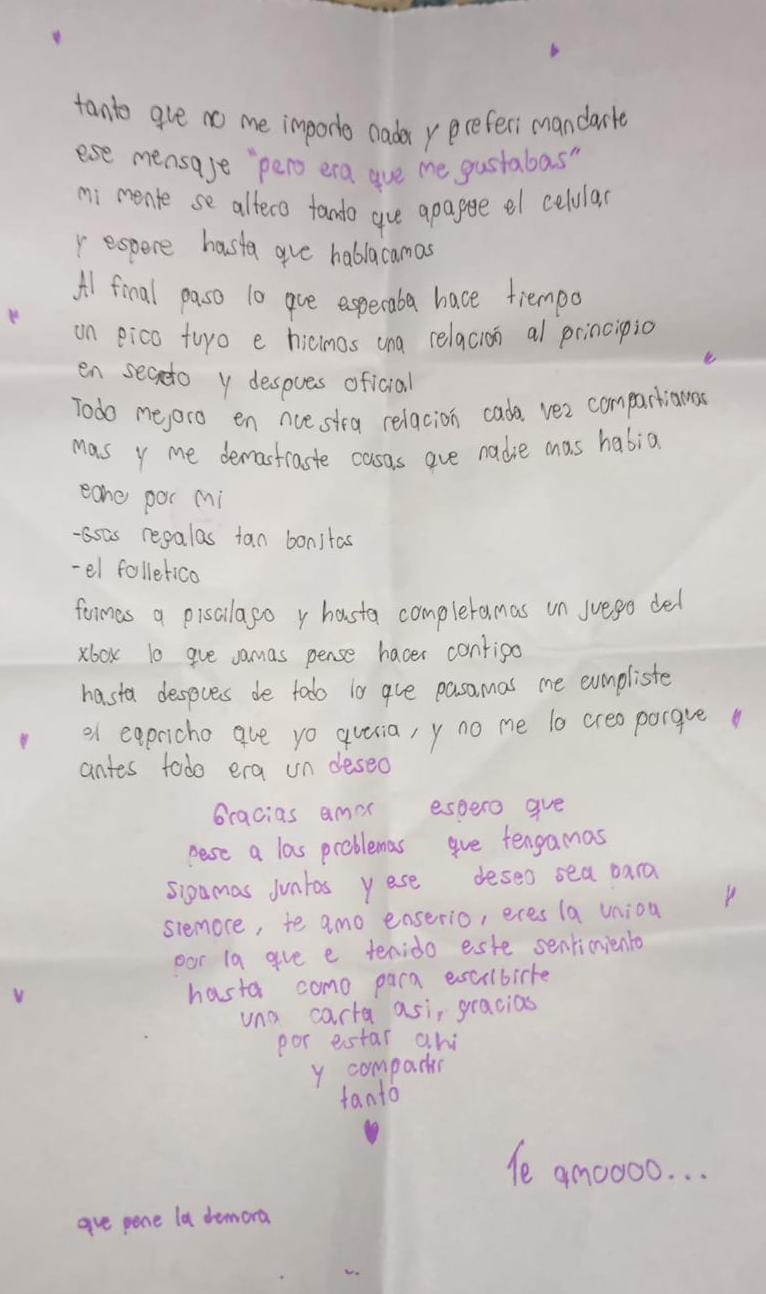 tanto que no me importo nada y preferi mandarte
ese mensaje "pero era que me gustabas"
mi mente se altero tanto que apague el celular
y espere hasta que hablacamos
Al final paso lo que esperaba hace tiempo
un pico tuyo e hicimos una relación al principio
en secreto y despues oficial
Todo mejoro en nuestra relación cada vez compartiamos
mas y me demostraste cosas que nadie mas habia
echo por mi
-esos regalos tan bonitos
-el folletico
fuimos a piscilago y hasta completamos un juego del
xbox lo que jamas pense hacer contigo
hasta despues de todo lo que pasamos me cumpliste
el capricho que yo queria, y no me lo creo porque
antes todo era un deseo
Gracias amor espero que
pese a los problemas que tengamos
sigamos juntos y ese deseo sea para
siempre, te amo enserio, eres la unica
por la que e tenido este sentimiento
hasta como para escribirte
una carta asi, gracias
por estar ahi
y compartir
tanto
Te amoooo...
que pene la demora